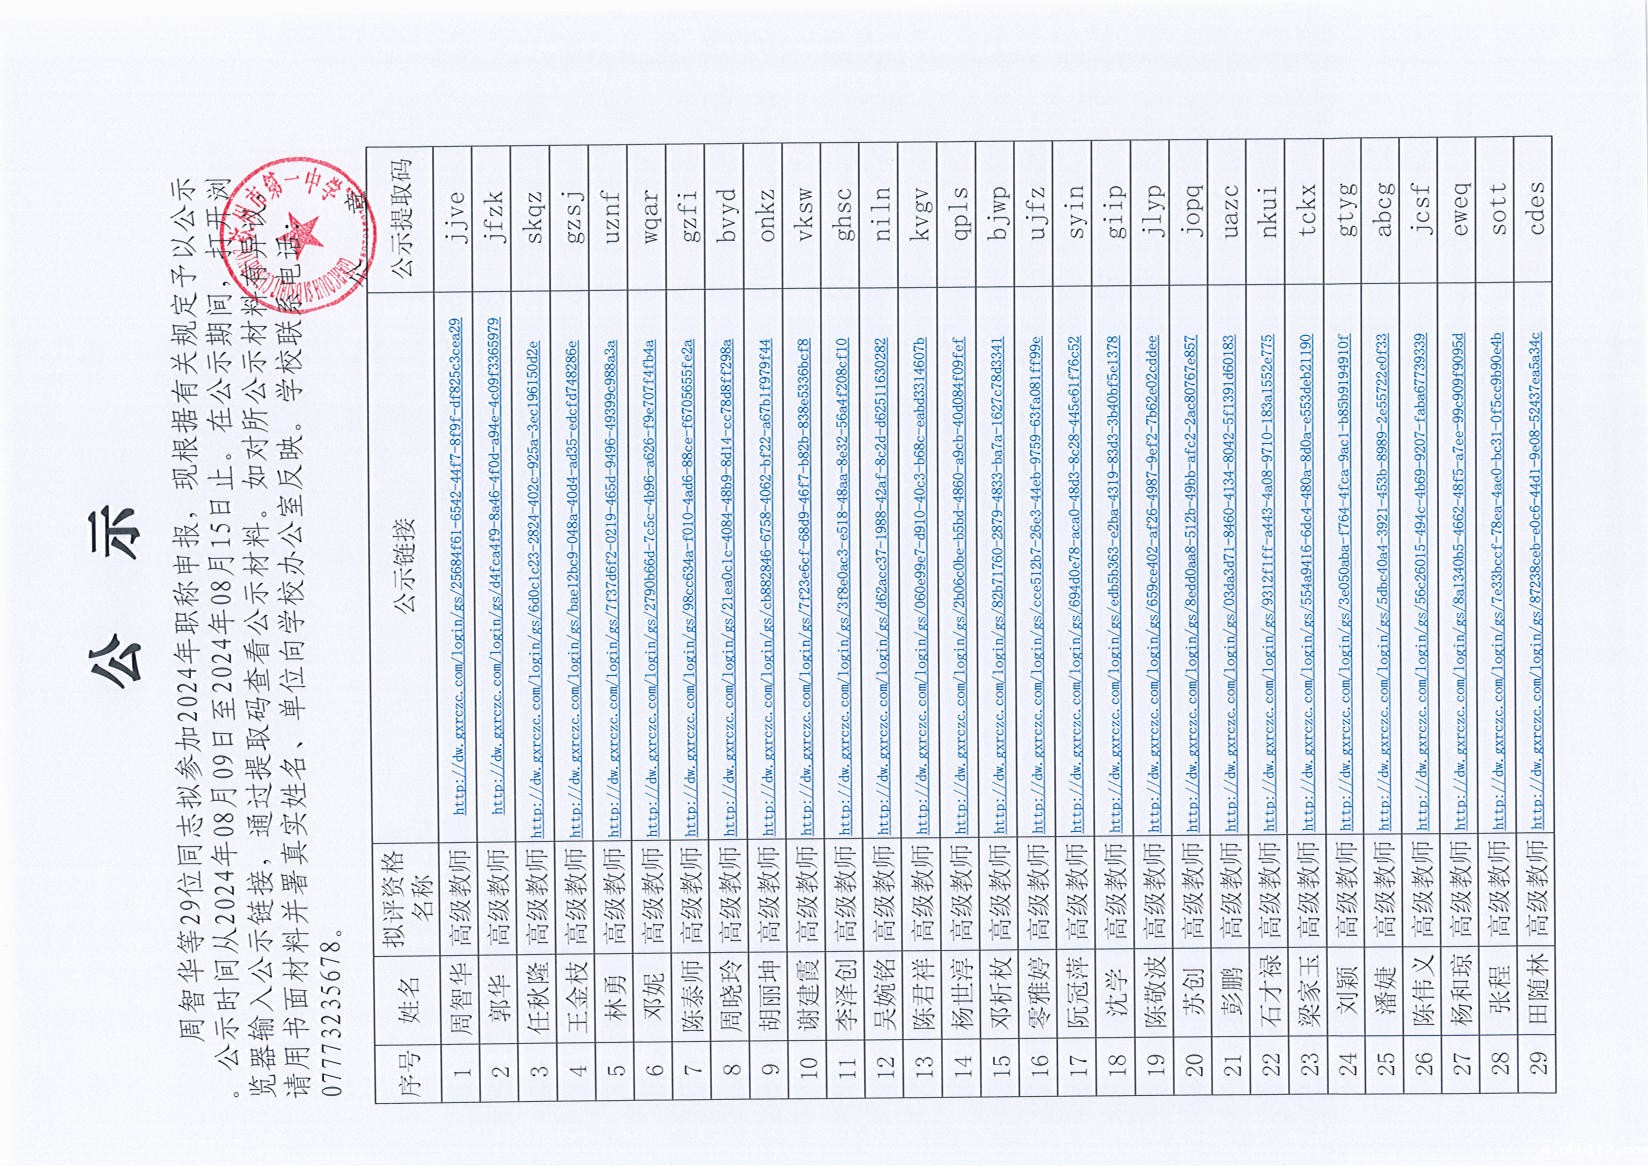 公 示
周智华等29位同志拟参加2024年职称申报，现根据有关规定予以公示
。公示时间从2024年08月09日至2024年08月15日止。在公示期间，打开浏
览器输入公示链接，通过提取码查看公示材料。如对所公示材料有异议
请用书面材料并署真实姓名、单位向学校办公室反映。学校联系电话：
07773235678。
市第一中学
公 章
序号 姓名 拟评资格名称 公示链接 公示提取码
1 周智华 高级教师 http://dw.gxrczc.com/login/gs/25684f61-6542-44f7-8f9f-df825c3cea29 jjve
2 郭华 高级教师 http://dw.gxrczc.com/login/gs/d4fca4f9-8a46-4f0d-a94e-4c09f3365979 jfzk
3 任秋隆 高级教师 http://dw.gxrczc.com/login/gs/6d0c1c23-2824-402c-925a-3ec196150d2e skqz
4 王金枝 高级教师 http://dw.gxrczc.com/login/gs/bae12bc9-048a-40d4-ad35-edcfd748286e gzsj
5 林勇 高级教师 http://dw.gxrczc.com/login/gs/7f37d6f2-0219-465d-9496-49399c988a3a uznf
6 邓妮 高级教师 http://dw.gxrczc.com/login/gs/2790b66d-7c5c-4b96-a626-f9e707f4fb4a wqar
7 陈泰师 高级教师 http://dw.gxrczc.com/login/gs/98cc634a-f010-4ad6-88ce-f6705655fe2a gzfi
8 周晓玲 高级教师 http://dw.gxrczc.com/login/gs/21ea0c1c-4084-48b9-8d14-cc78d8ff298a bvyd
9 胡丽坤 高级教师 http://dw.gxrczc.com/login/gs/cb882846-6758-4062-bf22-a67b1f979f44 onkz
10 谢建霞 高级教师 http://dw.gxrczc.com/login/gs/7f23e6cf-68d9-46f7-b82b-838e5336bcf8 vksw
11 李泽创 高级教师 http://dw.gxrczc.com/login/gs/3f8e0ac3-e518-48aa-8e32-56a4f208cf10 ghsc
12 吴婉铭 高级教师 http://dw.gxrczc.com/login/gs/d62acc37-1988-42af-8c2d-d62511630282 niln
13 陈君祥 高级教师 http://dw.gxrczc.com/login/gs/060e99e7-d910-40c3-b68c-eabd3314607b kvgv
14 杨世淳 高级教师 http://dw.gxrczc.com/login/gs/2b06c0be-b5bd-4860-a9cb-40d084f09fef qpls
15 邓析枚 高级教师 http://dw.gxrczc.com/login/gs/82b71760-2879-4833-ba7a-1627c78d3341 bjwp
16 零雅婷 高级教师 http://dw.gxrczc.com/login/gs/cce512b7-26e3-44eb-9759-63fa081ff99e ujfz
17 阮冠萍 高级教师 http://dw.gxrczc.com/login/gs/694d0e78-aca0-48d3-8c28-445e61f76c52 syin
18 沈学 高级教师 http://dw.gxrczc.com/login/gs/edb5b363-e2ba-4319-83d3-3b40bf5e1378 giip
19 陈敬波 高级教师 http://dw.gxrczc.com/login/gs/659ce402-af26-4987-9ef2-7b62e02cddee jlyp
20 苏创 高级教师 http://dw.gxrczc.com/login/gs/8edd0aa8-512b-49bb-afc2-2ac80767e857 jopq
21 彭鹏 高级教师 http://dw.gxrczc.com/login/gs/03da3d71-8460-4134-8042-5f1391d60183 uazc
22 石才禄 高级教师 http://dw.gxrczc.com/login/gs/9312f1ff-a443-4a08-9710-183a1552e775 nkui
23 梁家玉 高级教师 http://dw.gxrczc.com/login/gs/554a9416-6dc4-480a-8d0a-e553deb21190 tckx
24 刘颖 高级教师 http://dw.gxrczc.com/login/gs/3e050aba-f764-4fca-9ac1-b85b9194910f gtyg
25 潘婕 高级教师 http://dw.gxrczc.com/login/gs/5dbc40a4-3921-453b-8989-2e55722e0f33 abcg
26 陈伟义 高级教师 http://dw.gxrczc.com/login/gs/56c26015-494c-4b69-9207-faba67739339 jcsf
27 杨和琼 高级教师 http://dw.gxrczc.com/login/gs/8a1340b5-4662-48f5-a7ee-99c909f9095d eweq
28 张程 高级教师 http://dw.gxrczc.com/login/gs/7e33bccf-78ea-4ae0-bc31-0f5cc9b90e4b sott
29 田随林 高级教师 http://dw.gxrczc.com/login/gs/87238ceb-e0c6-44d1-9e08-52437ea5a34c cdes